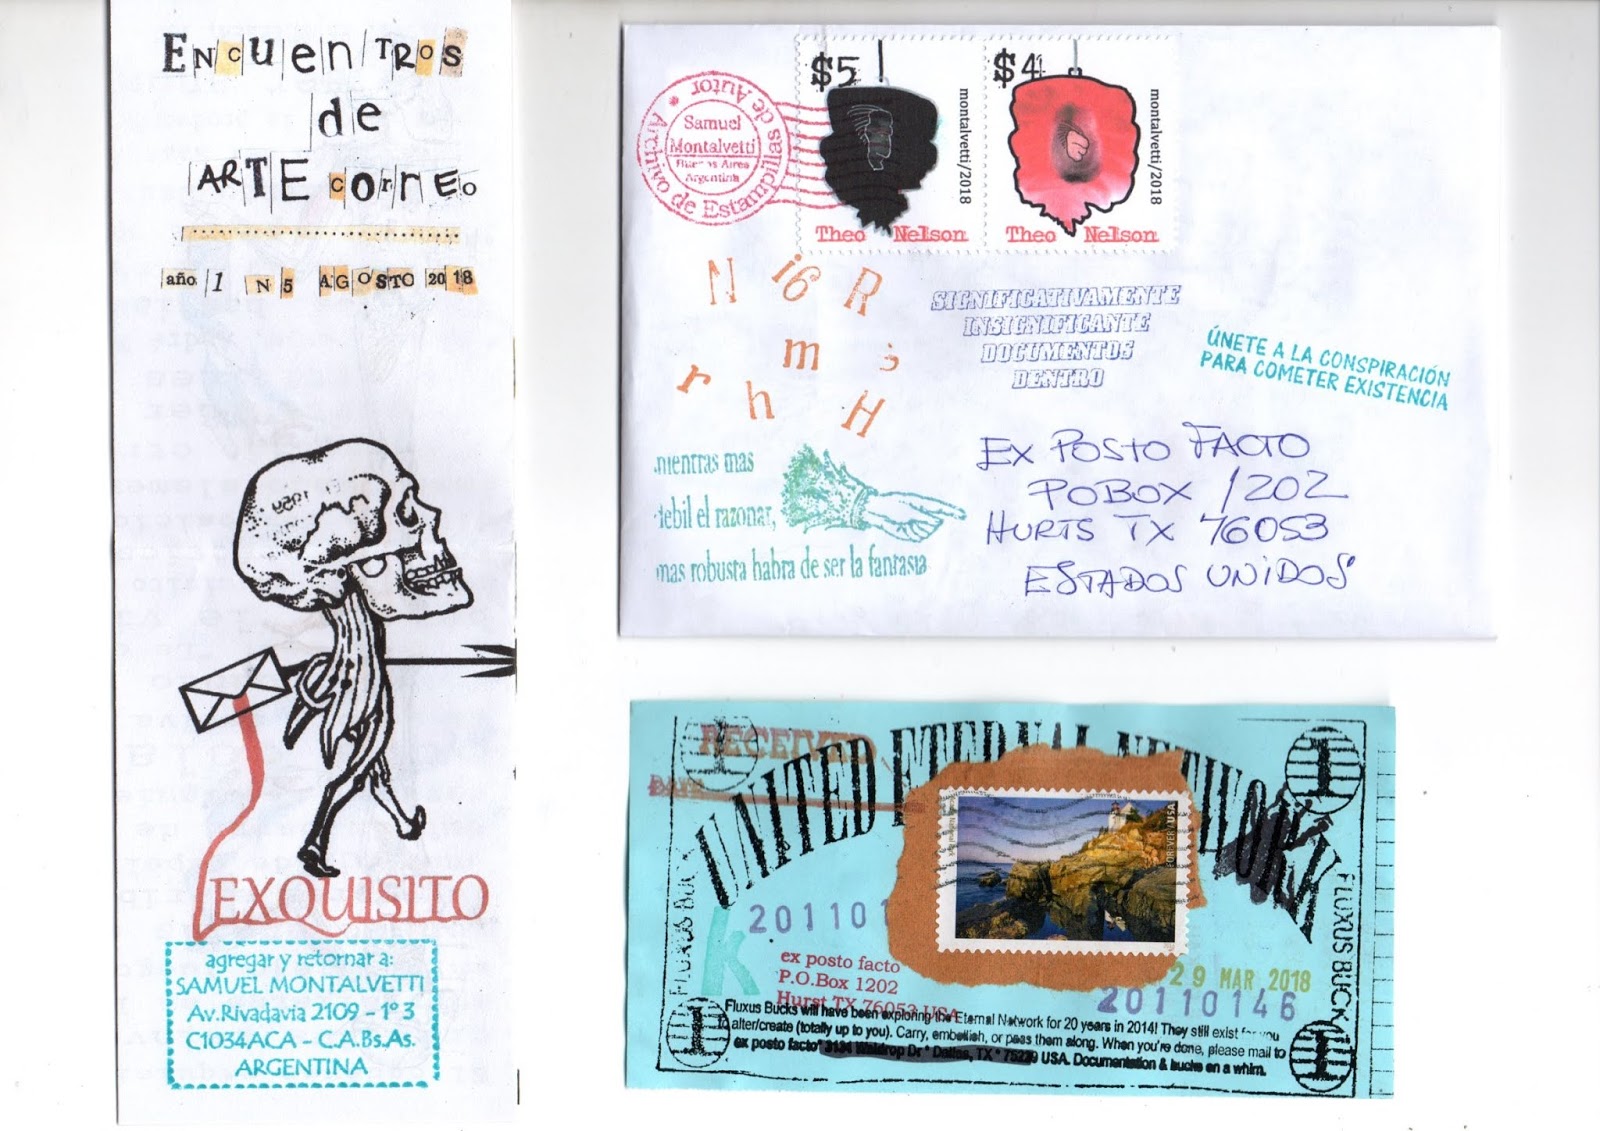 ENCUENTROS
de
ARTE CORREO
año 1 N 5 AGOSTO 2018
1950
EXQUISITO
agregar y retornar a:
SAMUEL MONTALVETTI
Av.Rivadavia 2109 - 1º 3
C1034ACA - C.A.Bs.As.
ARGENTINA
* Archivo de Estampillas de Autor
Samuel
Montalvetti
Buenos Aires
Argentina
$5
montalvetti/2018
Theo Nelson
$4
montalvetti/2018
Theo Nelson
N i6 R
m s
r h H
SIGNIFICATIVAMENTE
INSIGNIFICANTE
DOCUMENTOS
DENTRO
ÚNETE A LA CONSPIRACIÓN
PARA COMETER EXISTENCIA
mientras mas
debil el razonar,
mas robusta habra de ser la fantasia
EX POSTO FACTO
POBOX 1202
HURTS TX 76053
ESTADOS UNIDOS
RECEIVED
DATE
UNITED ETERNAL NETWORK
1
1
FOREVER USA
FLUXUS BUCK
FLUXUS BUCK
k
201101
ex posto facto
P.O.Box 1202
Hurst TX 76053 USA
29 MAR 2018
20110146
Fluxus Bucks will have been exploring the Eternal Network for 20 years in 2014! They still exist for you
to alter/create (totally up to you). Carry, embellish, or pass them along. When you're done, please mail to
ex posto facto* 3134 Waldrop Dr * Dallas, TX * 75229 USA. Documentation & bucks on a whim.
1
1